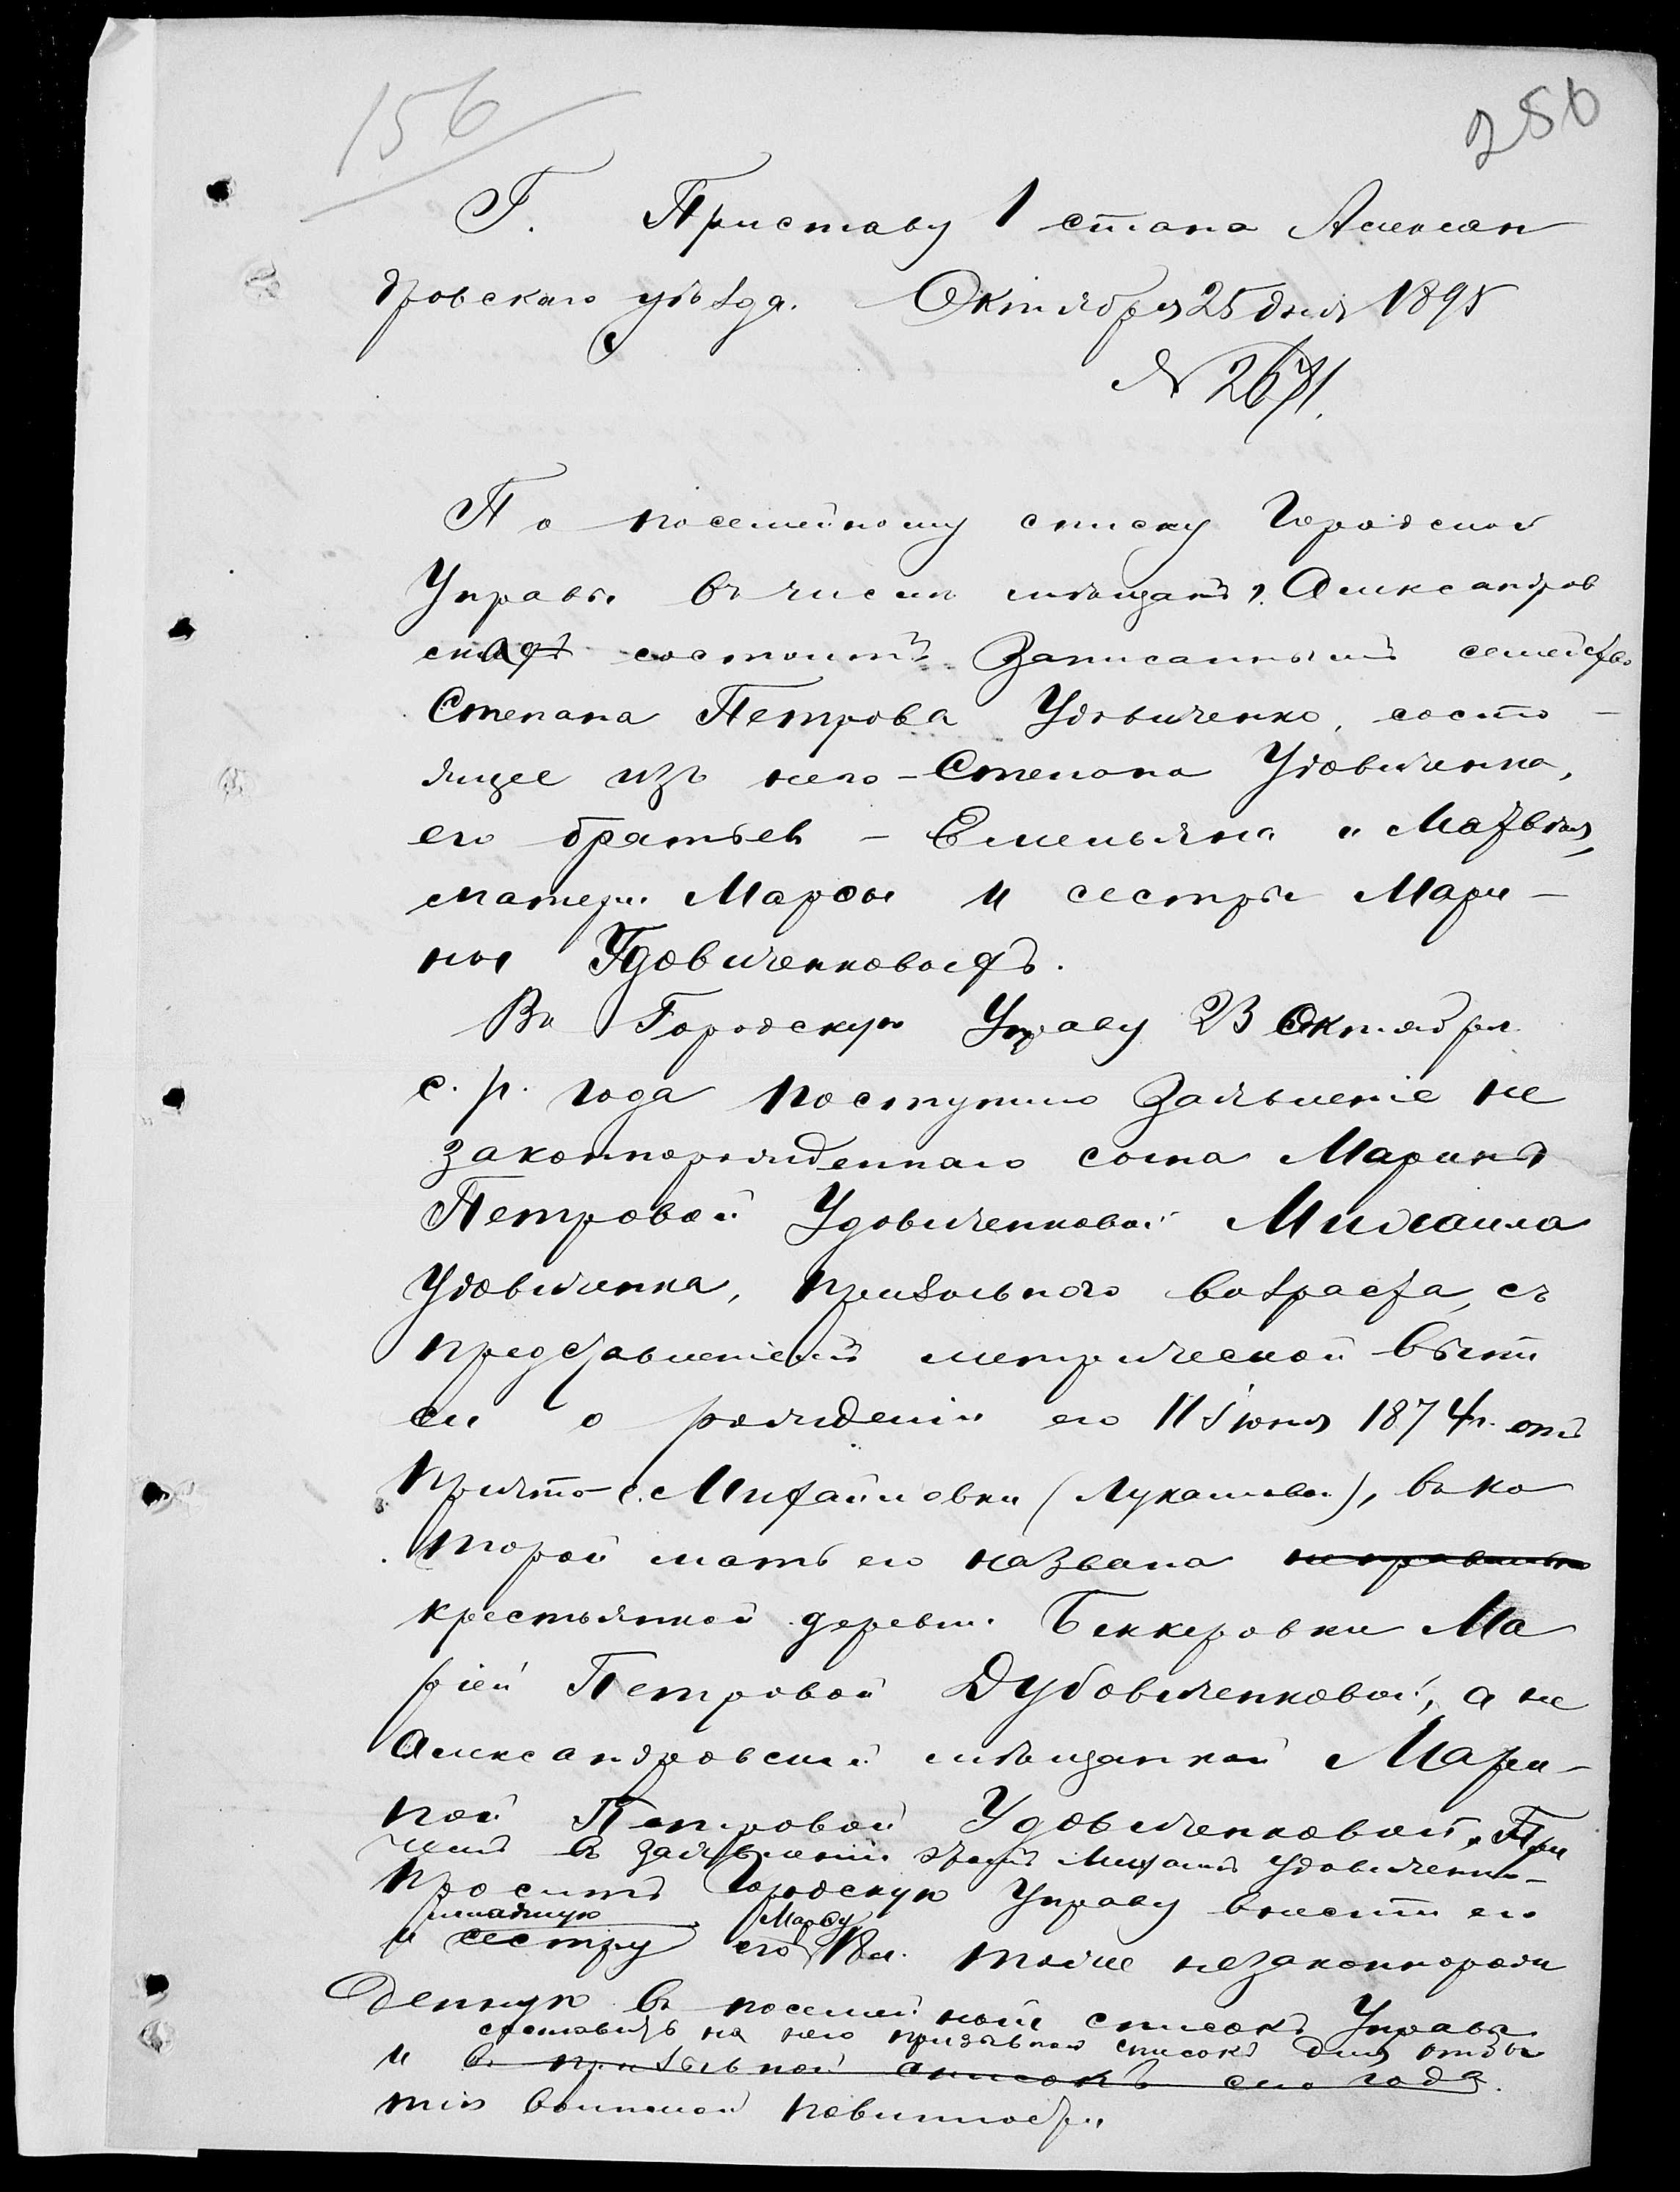 156
286
Г. Приставу 1 стана Алексан
дровскаго уѣзда. Октября 25 дня 1895
№ 2671.
По посемейному списку Городской
Управы въ числѣ мѣщанъ г. Александров
ска состоитъ записаннымъ семейство
Степана Петрова Удовиченко, состо-
ящее изъ него - Степана Удовиченка,
его братьев - Емельяна и Матвѣя,
матери Марфы и сестры Мари-
ны Удовиченковыхъ.
Въ Городскую Управу 23 Октября
с. г. года поступило заявленіе не
законнорожденнаго сына Марины
Петровой Удовиченковой Михаила
Удовиченка, призывного возраста, съ
представленіемъ метрической выпи
си о рожденіи его 11 Іюня 1874 г. отъ
причта с. Михайловки (Лукашева), въ ко
торой мать его названа неправильно
крестьянкой деревни Беккеровки Ма
ріей Петровой Дубовиченковой, а не
Александровской мѣщанкой Мари-
ной Петровой Удовиченковой. При
чемъ въ заявленіи этомъ Михаилъ Удовиченко
проситъ Городскую Управу внести его
младшую Марфу
и сестру его 18 л. тоже незаконнорож
денную въ посемейный списокъ Управы
составить на него призывной списокъ для отбы
и въ призывной списокъ сего года.
тія воинской повинности